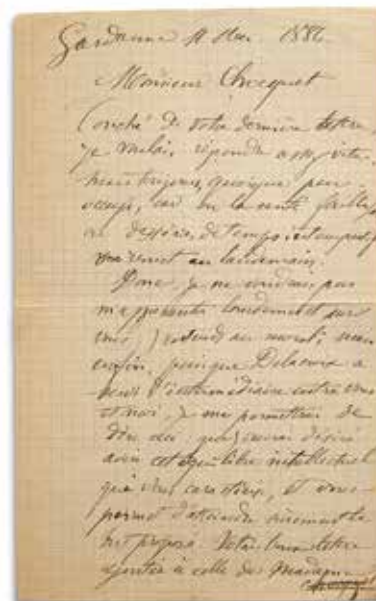 Gardanne 11 Mai 1886
Monsieur Chocquet
Touché de votre dernière lettre
je voulais répondre assez vite,
mais toujours, quoique peu
occupé, on
de temps
au lendemain.
Donc je ne voudrais pas
m'appesantir lourdement sur
vous, j'entends au moral; mais
enfin, puisque Delacroix a
servi d'intermédiaire entre vous
et moi, je me permettrai de
dire ceci que j'aurais désiré
avoir cet équilibre intellectuel
qui vous caractérise, et vous
permet d'atteindre sûrement le
but proposé. Votre bonne lettre
ajoutée à celle de Madame
Chocquet